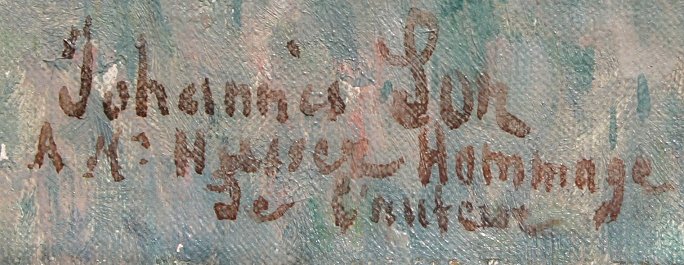 Johannis Son
A Mr Musser Hommage
de l'auteur